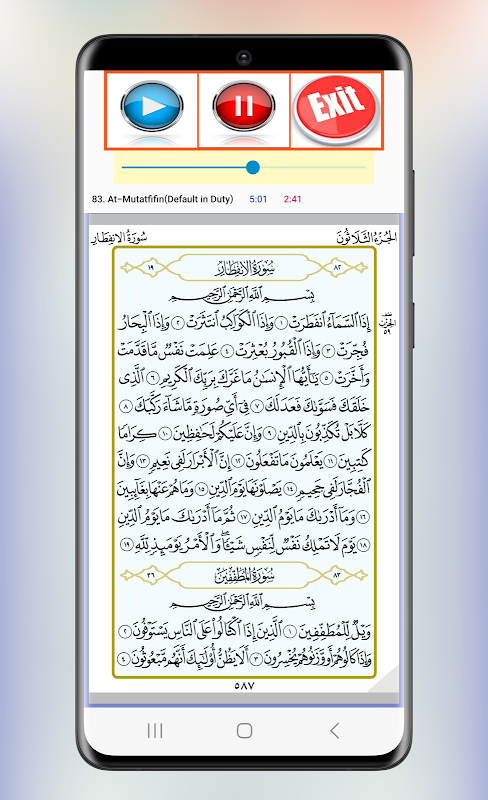 Exit
83. At-Mutatfifin(Default in Duty) 5:01 2:41
الجُزْءُ الثَّلَاثُونَ سُورَةُ الانفِطَارِ
٨٢ سُورَةُ الانفِطَارِ ١٩
بِسْمِ اللَّهِ الرَّحْمَٰنِ الرَّحِيمِ
إِذَا السَّمَاءُ انفَطَرَتْ ١ وَإِذَا الْكَوَاكِبُ انتَثَرَتْ ٢ وَإِذَا الْبِحَارُ
فُجِّرَتْ ٣ وَإِذَا الْقُبُورُ بُعْثِرَتْ ٤ عَلِمَتْ نَفْسٌ مَّا قَدَّمَتْ
وَأَخَّرَتْ ٥ يَا أَيُّهَا الْإِنسَانُ مَا غَرَّكَ بِرَبِّكَ الْكَرِيمِ ٦ الَّذِي
خَلَقَكَ فَسَوَّاكَ فَعَدَلَكَ ٧ فِي أَيِّ صُورَةٍ مَّا شَاءَ رَكَّبَكَ ٨
كَلَّا بَلْ تُكَذِّبُونَ بِالدِّينِ ٩ وَإِنَّ عَلَيْكُمْ لَحَافِظِينَ ١٠ كِرَامًا
كَاتِبِينَ ١١ يَعْلَمُونَ مَا تَفْعَلُونَ ١٢ إِنَّ الْأَبْرَارَ لَفِي نَعِيمٍ ١٣ وَإِنَّ
الْفُجَّارَ لَفِي جَحِيمٍ ١٤ يَصْلَوْنَهَا يَوْمَ الدِّينِ ١٥ وَمَا هُمْ عَنْهَا بِغَائِبِينَ
١٦ وَمَا أَدْرَاكَ مَا يَوْمُ الدِّينِ ١٧ ثُمَّ مَا أَدْرَاكَ مَا يَوْمُ الدِّينِ
١٨ يَوْمَ لَا تَمْلِكُ نَفْسٌ لِّنَفْسٍ شَيْئًا وَالْأَمْرُ يَوْمَئِذٍ لِّلَّهِ ١٩
٨٣ سُورَةُ المُطَفِّفِينَ ٣٦
بِسْمِ اللَّهِ الرَّحْمَٰنِ الرَّحِيمِ
وَيْلٌ لِّلْمُطَفِّفِينَ ١ الَّذِينَ إِذَا اكْتَالُوا عَلَى النَّاسِ يَسْتَوْفُونَ ٢
وَإِذَا كَالُوهُمْ أَو وَّزَنُوهُمْ يُخْسِرُونَ ٣ أَلَا يَظُنُّ أُولَٰئِكَ أَنَّهُم مَّبْعُوثُونَ ٤
٥٨٧